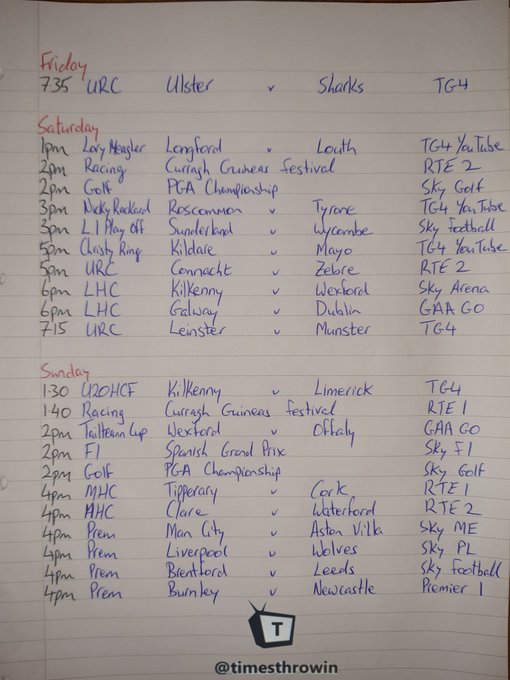 Friday
7.35 URC Ulster v Sharks TG4
Saturday
1pm Lory Meagher Longford v Louth TG4 YouTube
2pm Racing Curragh Guineas festival RTE 2
2pm Golf PGA Championship Sky Golf
3pm Nicky Rackard Roscommon v Tyrone TG4 YouTube
3pm L1 Play Off Sunderland v Wycombe Sky Football
5pm Christy Ring Kildare v Mayo TG4 YouTube
5pm URC Connacht v Zebre RTE 2
6pm LHC Kilkenny v Wexford Sky Arena
6pm LHC Galway v Dublin GAA GO
7.15 URC Leinster v Munster TG4
Sunday
1.30 U20HCF Kilkenny v Limerick TG4
1.40 Racing Curragh Guineas festival RTE 1
2pm Tailteann Cup Wexford v Offaly GAA GO
2pm F1 Spanish Grand Prix Sky F1
2pm Golf PGA Championship Sky Golf
4pm MHC Tipperary v Cork RTE 1
4pm MHC Clare v Waterford RTE 2
4pm Prem Man City v Aston Villa Sky ME
4pm Prem Liverpool v Wolves Sky PL
4pm Prem Brentford v Leeds Sky Football
4pm Prem Burnley v Newcastle Premier 1
T
@timesthrowin